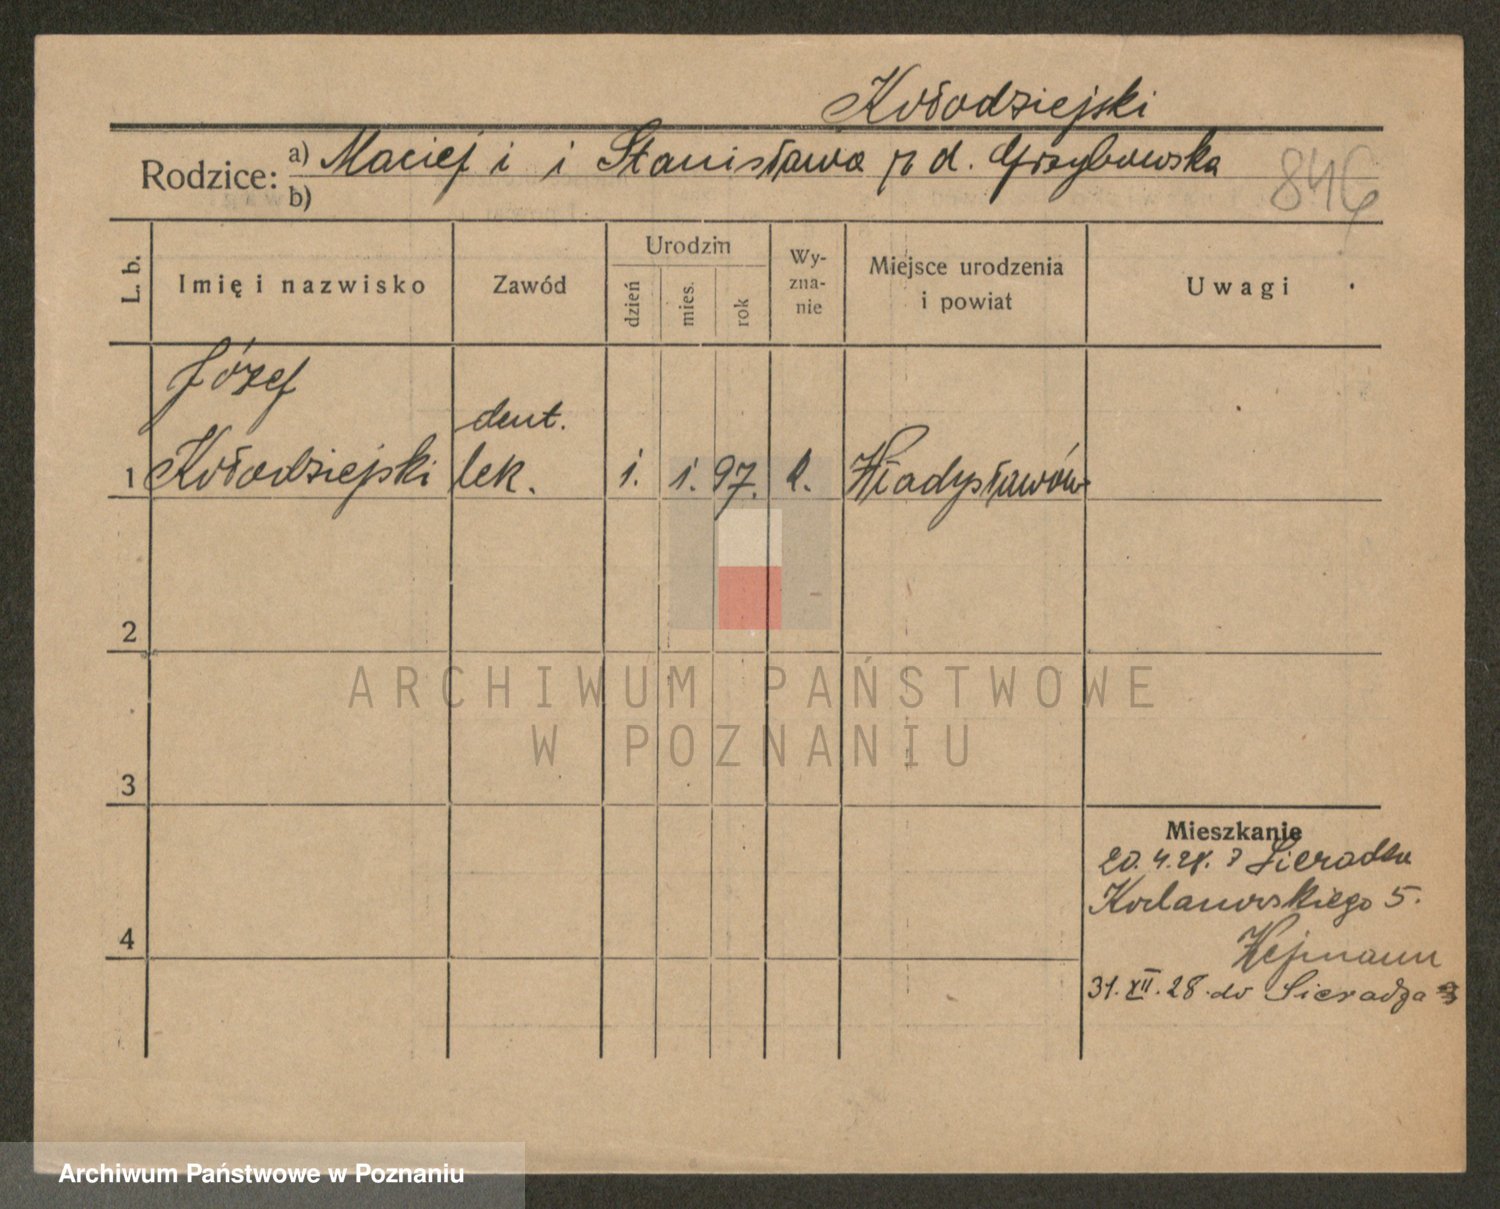 Kołodziejski
Rodzice: a) Maciej i i Stanisława z d. Grzybowska
b)
846
L. b.
Imię i nazwisko
Zawód
Urodzin
dzień
mies.
rok
Wy-
zna-
nie
Miejsce urodzenia
i powiat
Uwagi
Józef
dent.
1 Kołodziejski lek. 1. 1. 97. Władysławów
2
ARCHIWUM PAŃSTWOWE
W POZNANIU
3
Mieszkanie
20. 4. 28. z Sieradza
5.
4
Hejmann
31. XII. 28. do Sieradza
Archiwum Państwowe w Poznaniu